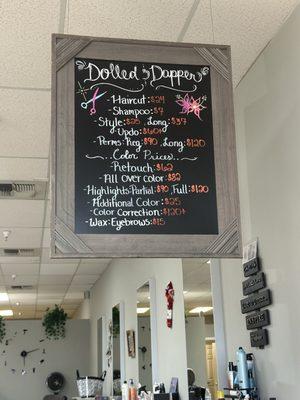 Dolled & Dapper
-Haircut $24
-Shampoo: $7
-Style: $25, Long: $37
Updo $60+
-Perms: Reg: $90, Long: $120
Color Prices:
-Retouch $62
-All Over color: $82
-Highlights: Partial: $90, Full: $120
-Additional Color: $25
-Color Correction: $120+
-Wax: Eyebrows: $15